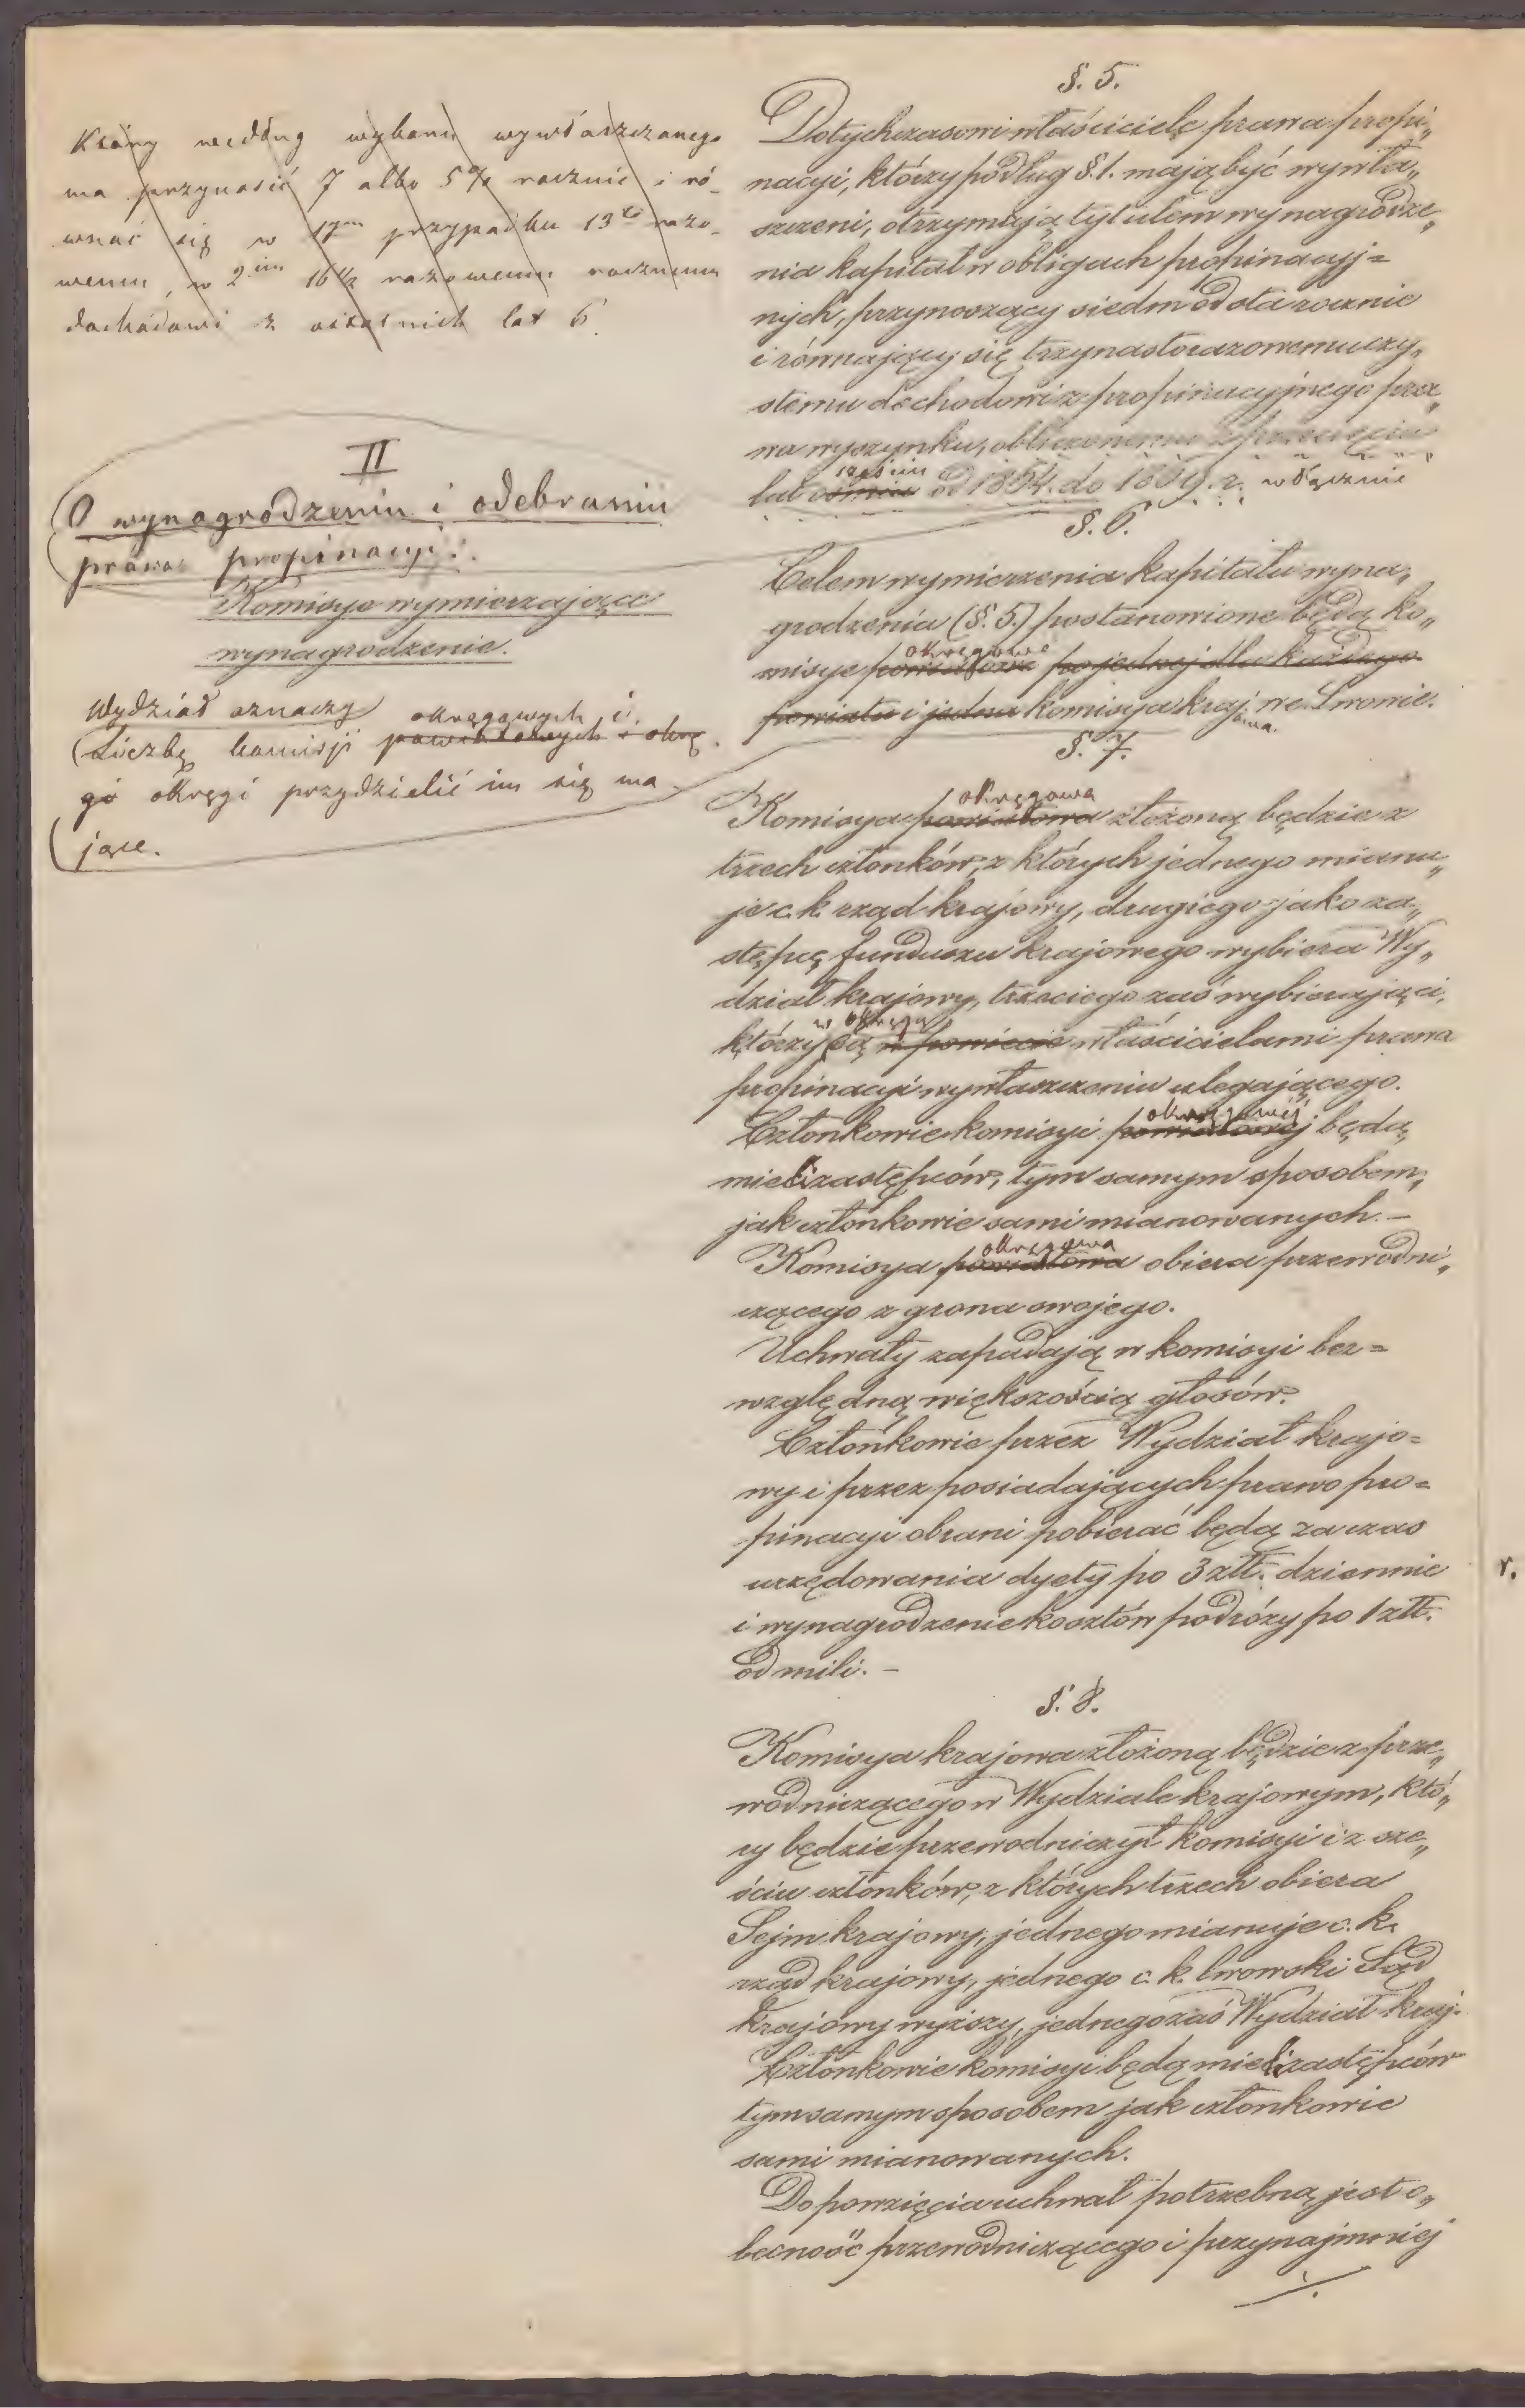 Który według wyboru wywłaszczonego
ma przynosić 7 albo 5% rocznie i ró-
wnać się w 1ym przypadku 13to razo-
wemu, w 2im 16½ razowemu rocznemu
dochodowi z ostatnich lat 6
II
O wynagrodzeniu i odebraniu
prawa propinacyi.
Komisye wymierzające
wynagrodzenie.
Wydział oznaczy
liczbę komisji powiatowych i okrę
okręgowych i
gi okręgi przydzielić im się ma-
jące.
§. 5.
Dotychczasowi właściciele prawa propi„
nacyi, którzy podług §. 1. mają być wywła„
szczeni, otrzymają tytułem wynagrodze„
nia kapitał w obligach propinacyj=
nych, przynoszący siedm od sta rocznie
i równający się trzynastorazowemu czy„
stemu dochodowi z propinacyjnego pra„
wa wyszynku, obliczonemu z przecięcia
sześciu
lat ośmiu od 1854. do 1859. r. włącznie
§. 6.
Celem wymierzenia kapitału wyna„
grodzenia (§. 5.) postanowione będą ko„
okręgowe
misye powiatowe po jednej dla każdego
powiatu i jedna komisya kraj. we Lwowie.
owa.
§. 7.
okręgowa
Komisya powiatowa złożoną będzie z
trzech członków, z których jednego mianu„
je c. k. rząd krajowy, drugiego jako za„
stępcę funduszu krajowego wybiera Wy„
dział krajowy, trzeciego zaś wybierający,
w okręgu
którzy są w powiecie właścicielami prawa
propinacyi wywłaszczeniu ulegającego.
okręgowéj
Członkowie komisyi powiatowej będą
mieli zastępców, tym samym sposobem,
jak członkowie sami mianowanych. -
okręgowa
Komisya powiatowa obiera przewodni„
czącego z grona swojego.
Uchwały zapadają w komisyi bez=
względną większością głosów.
Członkowie przez Wydział krajo=
wy i przez posiadających prawo pro=
pinacyi obrani pobierać będą za czas
urzędowania dyety po 3 złt. dziennie
i wynagrodzenie kosztów podróży po 1 złt.
od mili. -
§. 8.
Komisya krajowa złożoną będzie z prze„
wodniczącego w Wydziale krajowym, któ„
ry będzie przewodniczył komisyi i z sze„
ściu członków, z których trzech obiera
Sejm krajowy, jednego mianuje c. k.
rząd krajowy, jednego c. k. lwowski Sąd
krajowy wyższy, jednego zaś Wydział kraj.
Członkowie komisyi będą mieli zastępców
tym samym sposobem jak członkowie
sami mianowanych.
Do powzięcia uchwał potrzebną jest o„
becność przewodniczącego i przynajmniej
./.
r.